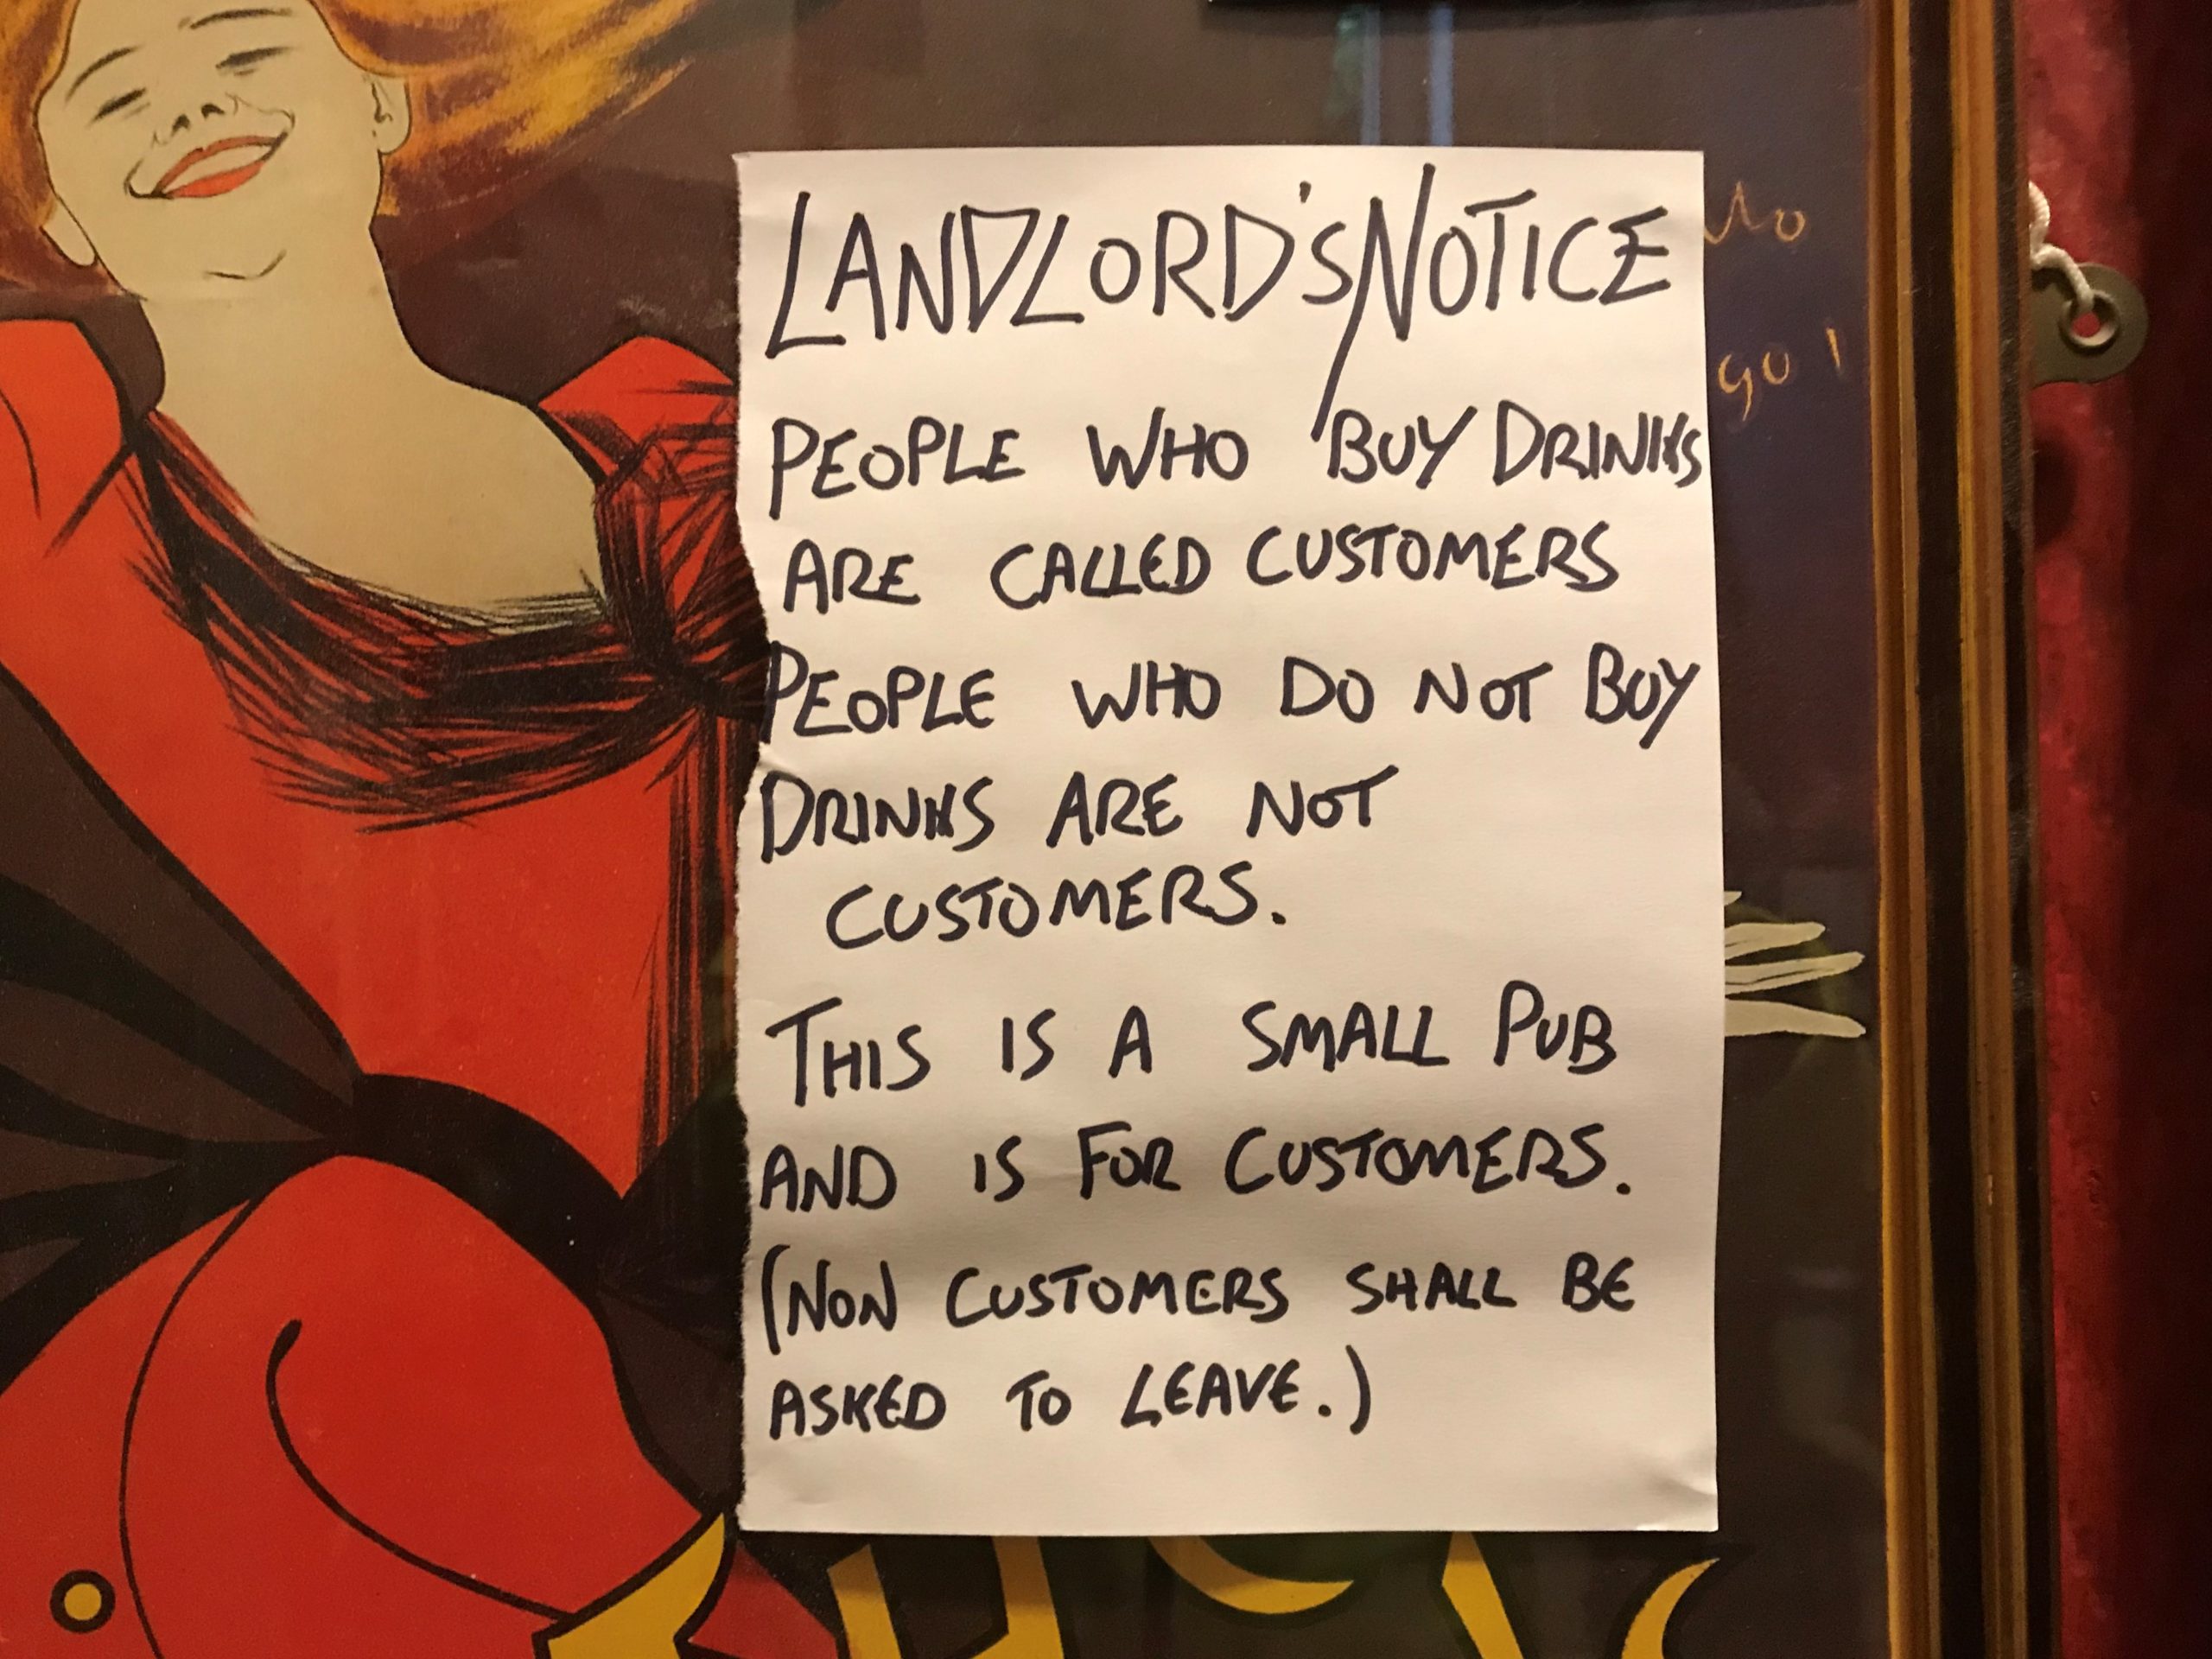 LANDLORD'S NOTICE
PEOPLE WHO BUY DRINKS
ARE CALLED CUSTOMERS
PEOPLE WHO DO NOT BUY
DRINKS ARE NOT
CUSTOMERS.
THIS IS A SMALL PUB
AND IS FOR CUSTOMERS.
(NON CUSTOMERS SHALL BE
ASKED TO LEAVE.)
go!